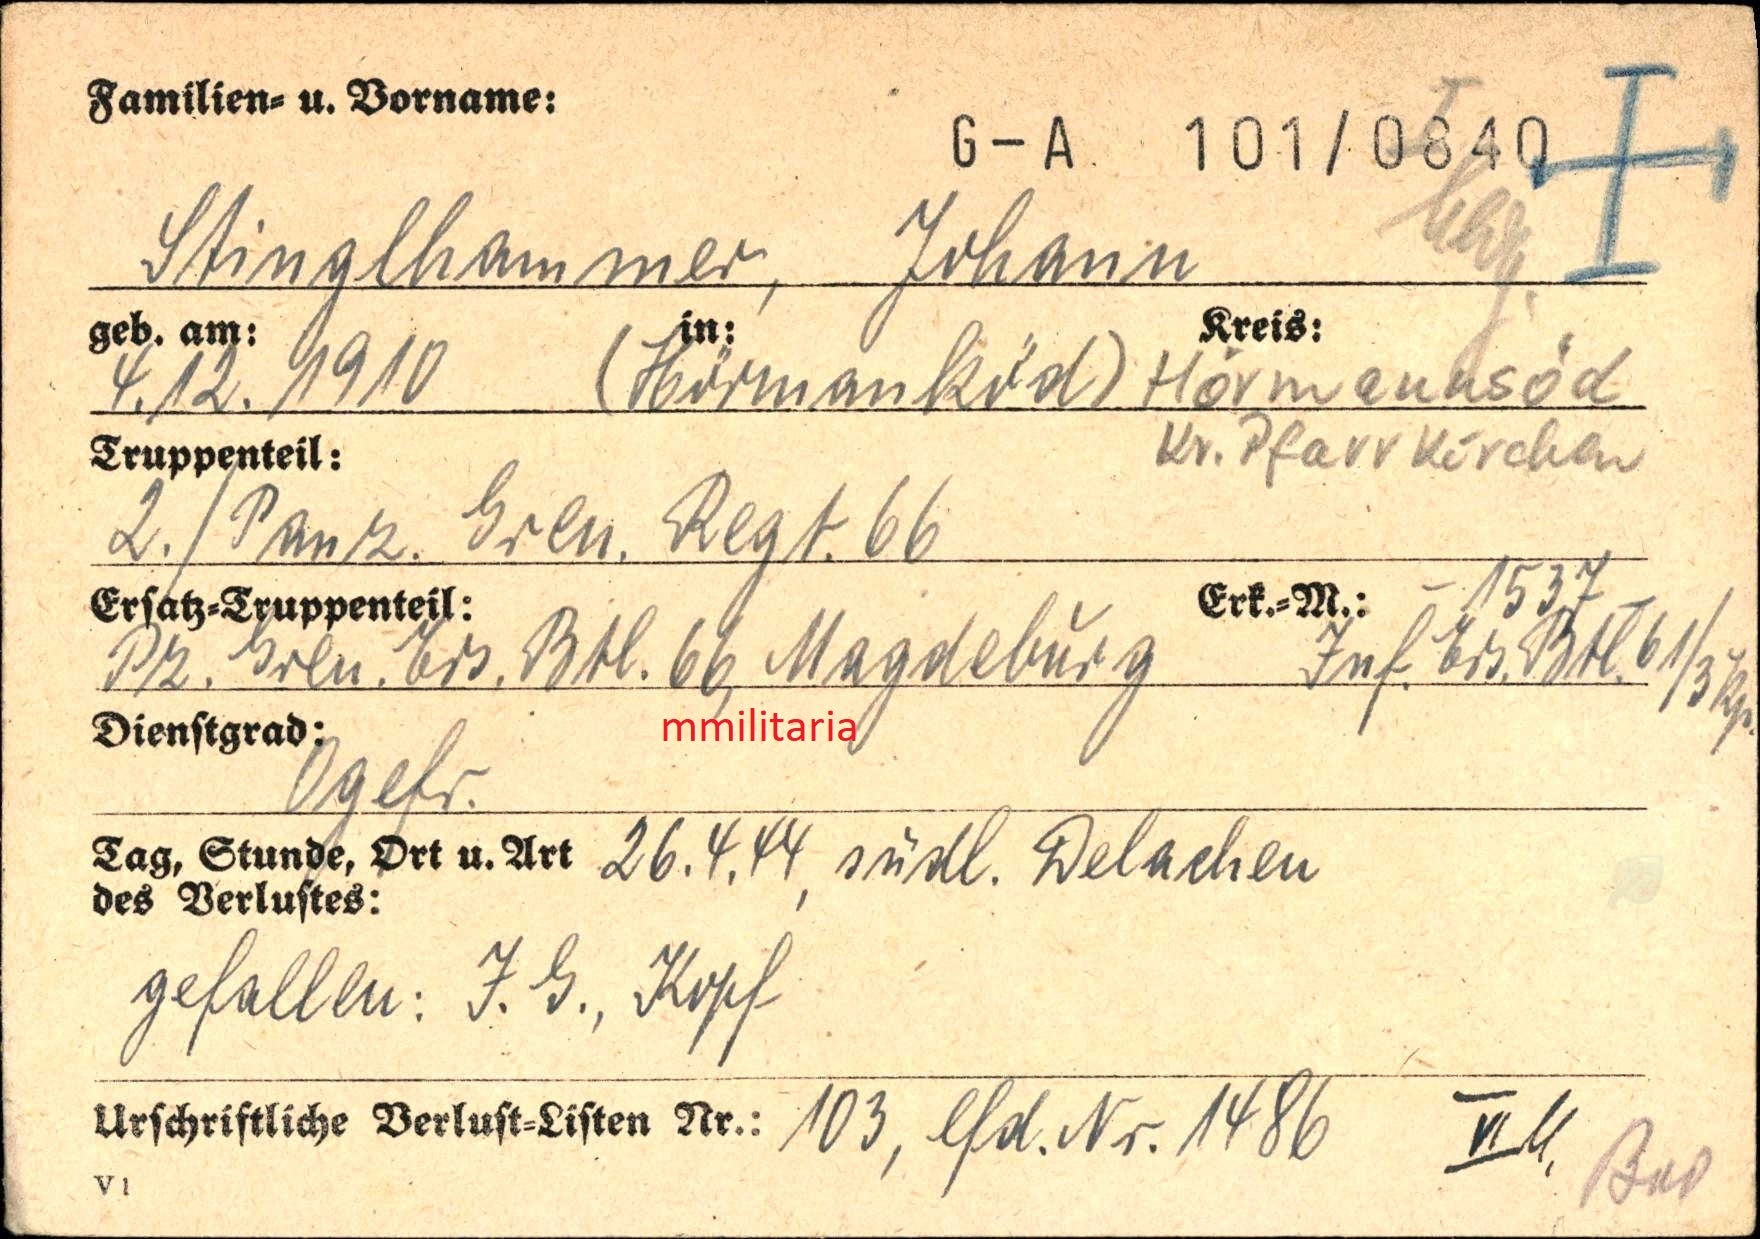 Familien- u. Vorname:
G-A 101/0840
Stinglhammer, Johann
geb. am: in: Kreis:
4.12.1910 (Hörmanköd) Hörmannsöd
Kr. Pfarrkirchen
Truppenteil:
2./Panz. Gren. Regt. 66
Ersatz-Truppenteil: Erk.-M.: - 1537 -
Pz. Gren. Ers. Btl. 66, Magdeburg Inf. Ers. Btl. 61/3 Kp.
mmilitaria
Dienstgrad:
Ogefr.
Tag, Stunde, Ort u. Art 26.4.44, südl. Delacheu
des Verlustes:
gefallen: J. G., Kopf
Urschriftliche Verlust-Listen Nr.: 103, lfd. Nr. 1486
V 1